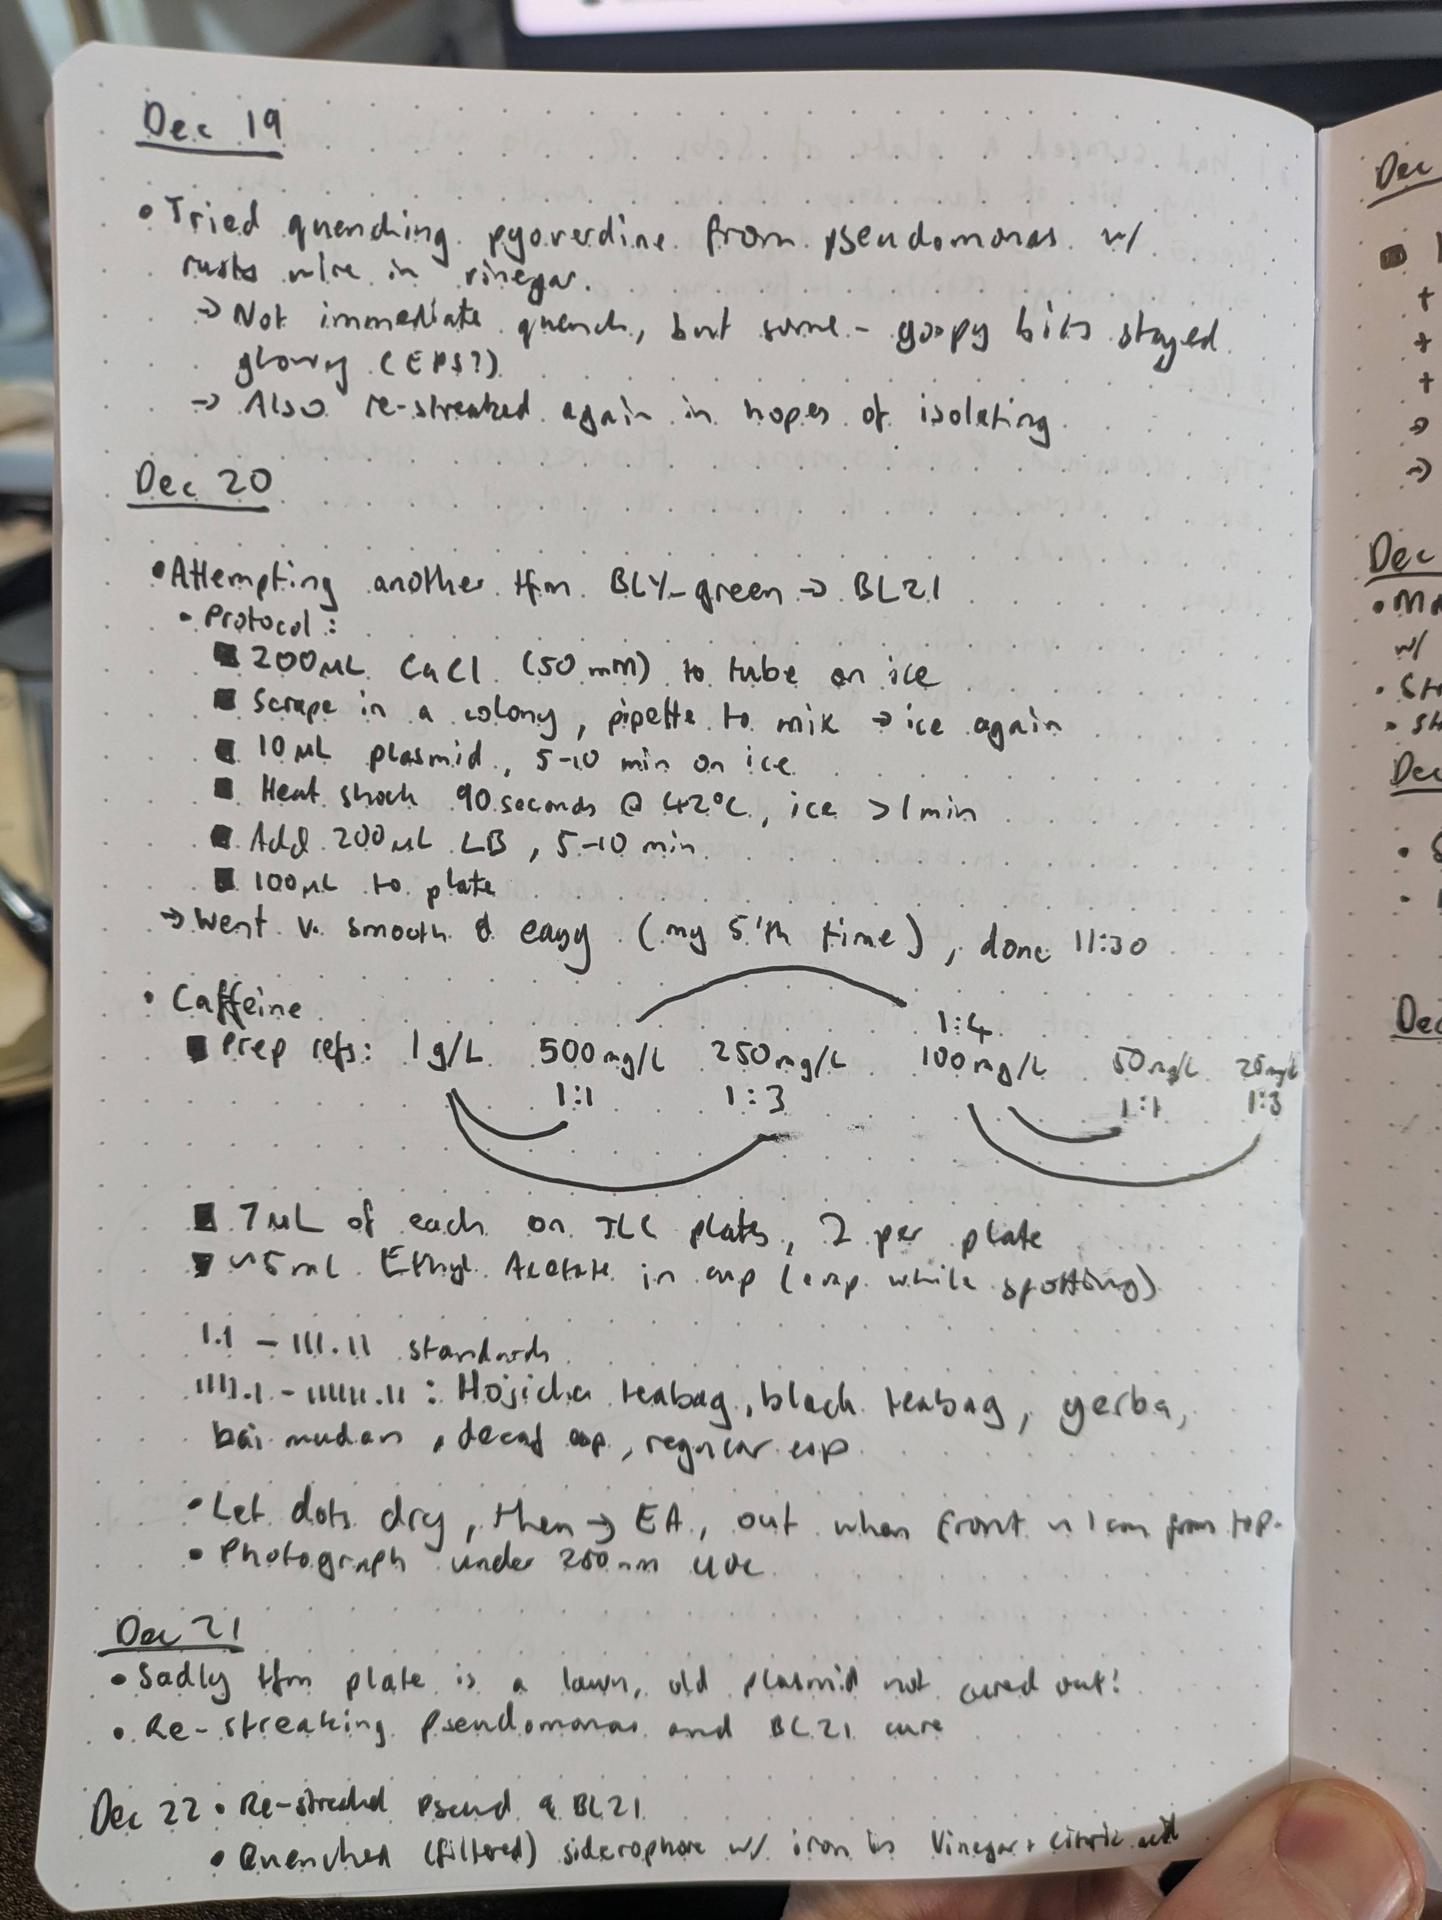 Dec 19
• Tried quenching pyoverdine from pseudomonas w/
rusts wire in vinegar.
→ Not immediate quench, but some - goopy bits stayed
glowy (EPS?)
→ Also re-streaked again in hopes of isolating
Dec 20
• Attempting another tfm BLY-green → BL21
• Protocol:
■ 200µL CaCl (50mM) to tube on ice
■ Scrape in a colony, pipette to mix → ice again
■ 10µL plasmid, 5-10 min on ice
■ Heat shock 90 seconds @ 42°C, ice >1min
■ Add 200µL LB, 5-10 min
■ 100µL to plate
→ Went v. smooth & easy (my 5'th time), done 11:30
• Caffeine
1:4
■ Prep refs: 1g/L 500mg/L 250mg/L 100mg/L 50mg/L 25mg/L
1:1 1:3 1:1 1:3
■ 7µL of each on TLC plates, 2 per plate
■ ~5mL Ethyl Acetate in cup (evap. while spotting)
I.I - III.II standards
IIII.I - IIIIII.II: Hojicha teabag, black teabag, yerba,
bai mudan, decaf esp, regular esp
• Let dots dry, then → EA, out when front ~1cm from top.
• Photograph under 250nm UVC
Dec 21
• Sadly tfm plate is a lawn, old plasmid not cured out!
• Re-streaking Pseudomonas and BL21 cure
Dec 22 • Re-streaked pseud & BL21
• Quenched (filtered) siderophore w/ iron in Vinegar + citric acid
Dec
+
+
+
→
→
Dec
w/
Dec
Dec